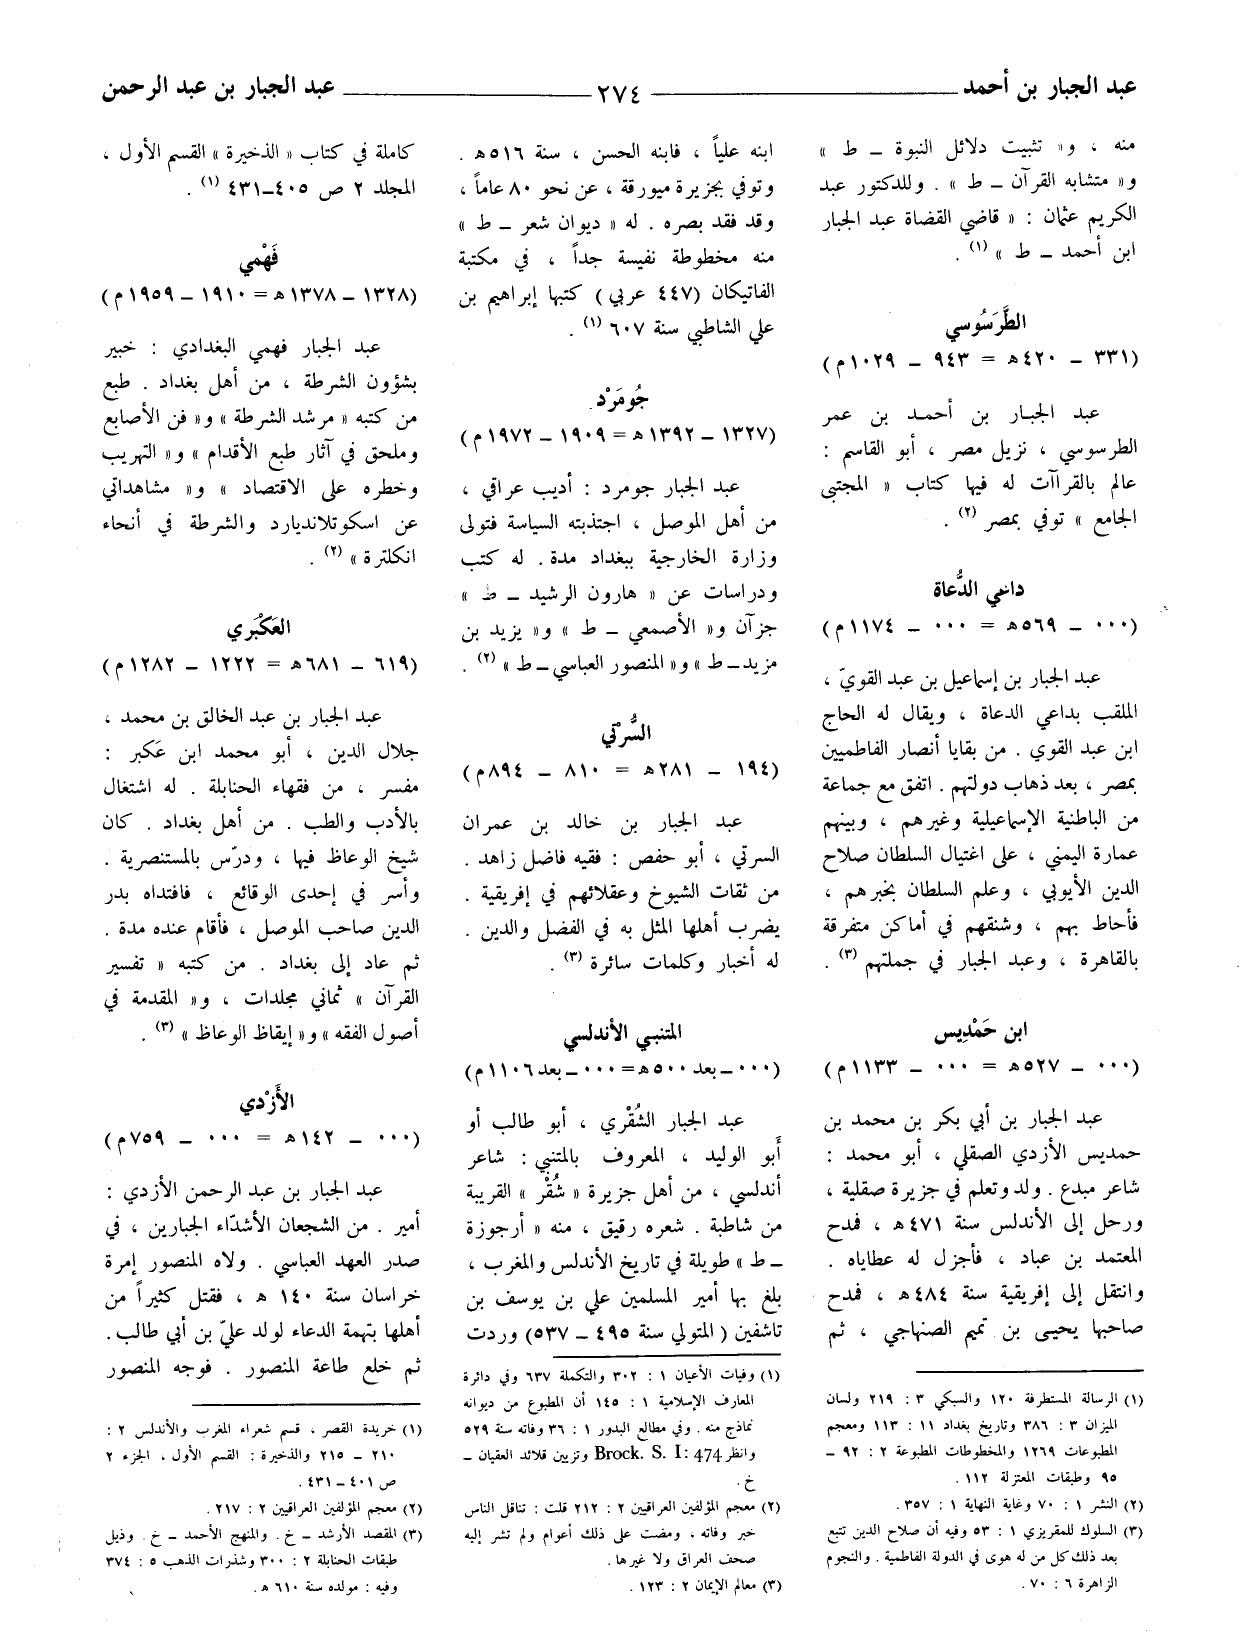 عبد الجبار بن أحمد ٢٧٤ عبد الجبار بن عبد الرحمن
منه ، و« تثبيت دلائل النبوة ـ ط »
و« متشابه القرآن ـ ط » . وللدكتور عبد
الكريم عثمان : « قاضي القضاة عبد الجبار
ابن أحمد ـ ط » (١) .
الطَّرَسُوسي
(٣٣١ ـ ٤٢٠هـ = ٩٤٣ ـ ١٠٢٩م)
عبد الجبار بن أحمد بن عمر
الطرسوسي ، نزيل مصر ، أبو القاسم :
عالم بالقراآت له فيها كتاب « المجتبى
الجامع » توفي بمصر (٢) .
داعي الدُّعاة
(٠٠٠ ـ ٥٦٩هـ = ٠٠٠ ـ ١١٧٤م)
عبد الجبار بن إسماعيل بن عبد القويّ ،
الملقب بداعي الدعاة ، ويقال له الحاج
ابن عبد القوي . من بقايا أنصار الفاطميين
بمصر ، بعد ذهاب دولتهم . اتفق مع جماعة
من الباطنية الإسماعيلية وغيرهم ، وبينهم
عمارة اليمني ، على اغتيال السلطان صلاح
الدين الأيوبي ، وعلم السلطان بخبرهم ،
فأحاط بهم ، وشنقهم في أماكن متفرقة
بالقاهرة ، وعبد الجبار في جملتهم (٣) .
ابن حَمْدِيس
(٠٠٠ ـ ٥٢٧هـ = ٠٠٠ ـ ١١٣٣م)
عبد الجبار بن أبي بكر بن محمد بن
حمديس الأزدي الصقلي ، أبو محمد :
شاعر مبدع . ولد وتعلم في جزيرة صقلية ،
ورحل إلى الأندلس سنة ٤٧١هـ ، فمدح
المعتمد بن عباد ، فأجزل له عطاياه .
وانتقل إلى إفريقية سنة ٤٨٤هـ ، فمدح
صاحبها يحيى بن تميم الصنهاجي ، ثم
(١) الرسالة المستطرفة ١٢٠ والسبكي ٣ : ٢١٩ ولسان
الميزان ٣ : ٣٨٦ وتاريخ بغداد ١١ : ١١٣ ومعجم
المطبوعات ١٢٦٩ والمخطوطات المطبوعة ٢ : ٩٢ ـ
٩٥ وطبقات المعتزلة ١١٢ .
(٢) النشر ١ : ٧٠ وغاية النهاية ١ : ٣٥٧.
(٣) السلوك للمقريزي ١ : ٥٣ وفيه أن صلاح الدين تتبع
بعد ذلك كل من له هوى في الدولة الفاطمية . والنجوم
الزاهرة ٦ : ٧٠ .
ابنه علياً ، فابنه الحسن ، سنة ٥١٦هـ .
وتوفي بجزيرة ميورقة ، عن نحو ٨٠ عاماً ،
وقد فقد بصره . له « ديوان شعر ـ ط »
منه مخطوطة نفيسة جداً ، في مكتبة
الفاتيكان (٤٤٧ عربي) كتبها إبراهيم بن
علي الشاطبي سنة ٦٠٧ (١) .
جُومَرْد
(١٣٢٧ ـ ١٣٩٢هـ = ١٩٠٩ ـ ١٩٧٢م)
عبد الجبار جومرد : أديب عراقي ،
من أهل الموصل ، اجتذبته السياسة فتولى
وزارة الخارجية ببغداد مدة . له كتب
ودراسات عن « هارون الرشيد ـ ط »
جزآن و« الأصمعي ـ ط » و« يزيد بن
مزيد ـ ط » و« المنصور العباسي ـ ط » (٢) .
السُّرْتي
(١٩٤ ـ ٢٨١هـ = ٨١٠ ـ ٨٩٤م)
عبد الجبار بن خالد بن عمران
السرتي ، أبو حفص : فقيه فاضل زاهد .
من ثقات الشيوخ وعقلائهم في إفريقية .
يضرب أهلها المثل به في الفضل والدين .
له أخبار وكلمات سائرة (٣) .
المتنبي الأندلسي
(٠٠٠ ـ بعد ٥٠٠هـ = ٠٠٠ ـ بعد ١١٠٦م)
عبد الجبار الشُقْري ، أبو طالب أو
أبو الوليد ، المعروف بالمتنبي : شاعر
أندلسي ، من أهل جزيرة « شُقْر » القريبة
من شاطبة . شعره رقيق ، منه « أرجوزة
ـ ط » طويلة في تاريخ الأندلس والمغرب ،
بلغ بها أمير المسلمين علي بن يوسف بن
تاشفين ( المتولي سنة ٤٩٥ ـ ٥٣٧) وردت
(١) وفيات الأعيان ١ : ٣٠٢ والتكملة ٦٣٧ وفي دائرة
المعارف الإسلامية ١ : ١٤٥ أن المطبوع من ديوانه
نماذج منه . وفي مطالع البدور ١ : ٣٦ وفاته سنة ٥٢٩
وانظر Brock. S. I: 474 وتزيين قلائد العقيان ـ
خ .
(٢) معجم المؤلفين العراقيين ٢ : ٢١٢ قلت : تناقل الناس
خبر وفاته ، ومضت على ذلك أعوام ولم تشر إليه
صحف العراق ولا غيرها .
(٣) معالم الإيمان ٢ : ١٢٣ .
كاملة في كتاب « الذخيرة » القسم الأول ،
المجلد ٢ ص ٤٠٥ـ٤٣١ (١) .
فَهْمي
(١٣٢٨ ـ ١٣٧٨هـ = ١٩١٠ ـ ١٩٥٩م)
عبد الجبار فهمي البغدادي : خبير
بشؤون الشرطة ، من أهل بغداد . طبع
من كتبه « مرشد الشرطة » و« فن الأصابع
وملحق في آثار طبع الأقدام » و« التهريب
وخطره على الاقتصاد » و« مشاهداتي
عن اسكوتلانديارد والشرطة في أنحاء
انكلترة » (٢) .
العَكْبَري
(٦١٩ ـ ٦٨١هـ = ١٢٢٢ ـ ١٢٨٢م)
عبد الجبار بن عبد الخالق بن محمد ،
جلال الدين ، أبو محمد ابن عَكبر :
مفسر ، من فقهاء الحنابلة . له اشتغال
بالأدب والطب . من أهل بغداد . كان
شيخ الوعاظ فيها ، ودرّس بالمستنصرية .
وأسر في إحدى الوقائع ، فافتداه بدر
الدين صاحب الموصل ، فأقام عنده مدة .
ثم عاد إلى بغداد . من كتبه « تفسير
القرآن » ثماني مجلدات ، و« المقدمة في
أصول الفقه » و« إيقاظ الوعاظ » (٣) .
الأَزْدي
(٠٠٠ ـ ١٤٢هـ = ٠٠٠ ـ ٧٥٩م)
عبد الجبار بن عبد الرحمن الأزدي :
أمير . من الشجعان الأشدّاء الجبارين ، في
صدر العهد العباسي . ولاه المنصور إمرة
خراسان سنة ١٤٠ هـ ، فقتل كثيراً من
أهلها بتهمة الدعاء لولد عليّ بن أبي طالب.
ثم خلع طاعة المنصور . فوجه المنصور
(١) خريدة القصر ، قسم شعراء المغرب والأندلس ٢ :
٢١٠ ـ ٢١٥ والذخيرة : القسم الأول ، الجزء ٢
ص ٤٠١ ـ ٤٣١ .
(٢) معجم المؤلفين العراقيين ٢ : ٢١٧ .
(٣) المقصد الأرشد ـ خ . والمنهج الأحمد ـ خ . وذيل
طبقات الحنابلة ٢ : ٣٠٠ وشذرات الذهب ٥ : ٣٧٤
وفيه : مولده سنة ٦١٠ هـ .